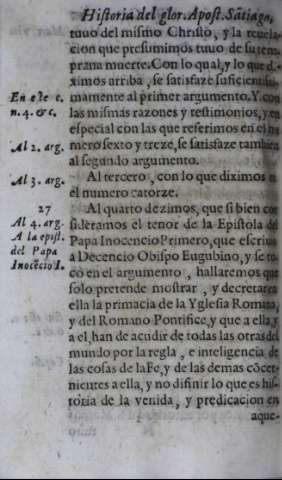 Historia del glor. Apost. Sãtiago,
tuuo del mismo Christo, y la reuela-
cion que presumimos tuuo de su tem
prana muerte. Con lo qual, y lo que d-
ximos arriba, se satisface
En este c.
n. 4. &c.
mamente al primer argumento. Y con
las mismas razones y testimonios, y en
especial con las que referimos en el nu
Al 2. arg.
mero sexto y treze, se satisfaze tambien
al segundo argumento.
Al 3. arg.
Al tercero, con lo que diximos n
el numero catorze.
27
Al 4. arg.
A la epist.
del Papa
Inocẽcio I.
Al quarto dezimos, que si bien con
sideramos el tenor de la Epistola del
Papa Inocencio Primero, que escriuio
a Decencio Obispo Eugubino, y se to
có en el argumento, hallaremos que
solo pretende mostrar, y decretar en
ella la primacia de la Yglesia Romana,
y del Romano Pontifice, y que a ella, y
a el, han de acudir de todas las otras del
mundo por la regla, e inteligencia de
las cosas de la Fe, y de las demas cõcer-
nientes a ella, y no difinir lo que es his-
toria de la venida, y predicacion en
aque-